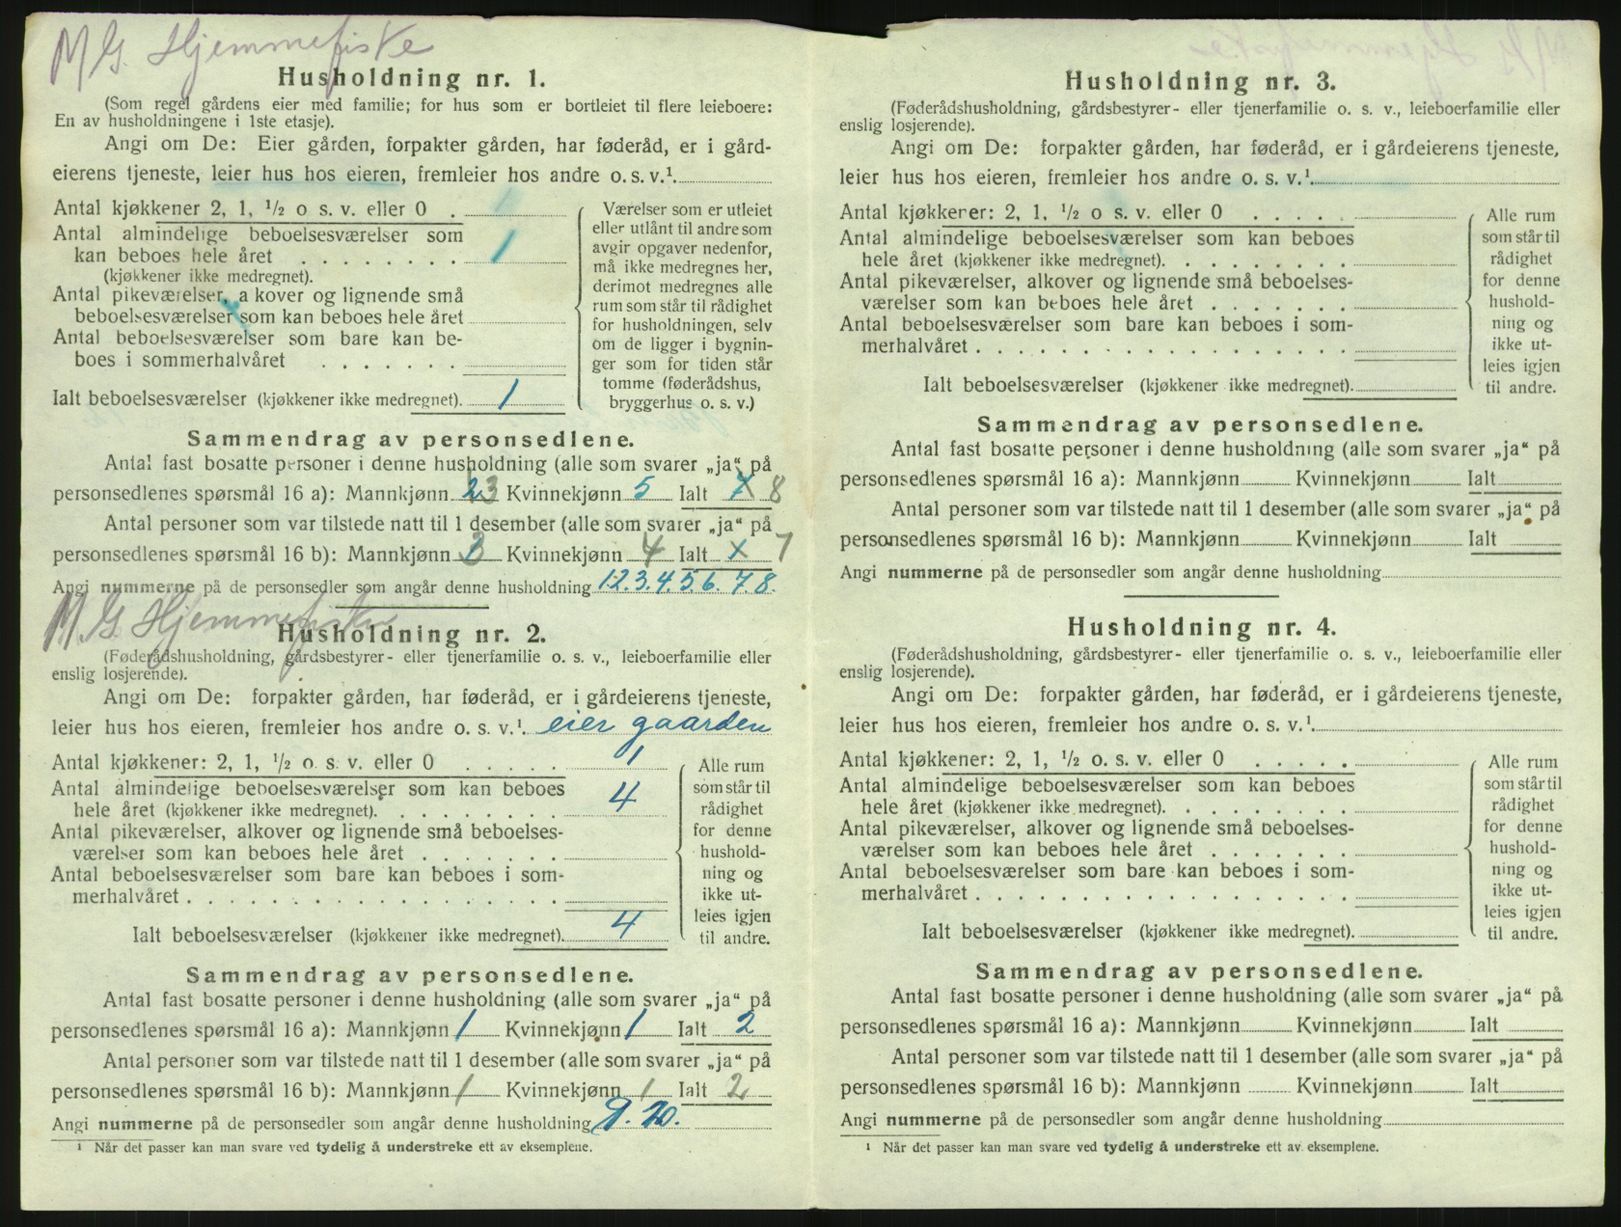 M G. Hjemmefiske
Husholdning nr. 1.
(Som regel gårdens eier med familie; for hus som er bortleiet til flere leieboere:
En av husholdningene i 1ste etasje).
Angi om De: Eier gården, forpakter gården, har føderåd, er i gård-
eierens tjeneste, leier hus hos eieren, fremleier hos andre o. s. v.¹.
Antal kjøkkener 2, 1, ½ o s. v. eller 0 .
Antal almindelige beboelsesværelser som
kan beboes hele året . . . . . . . . 1
(kjøkkener ikke medregnet).
Antal pikeværelser, a kover og lignende små
beboelsesværelser som kan beboes hele året
Antal beboelsesværelser som bare kan be-
boes i sommerhalvåret . . . . . . .
Ialt beboelsesværelser (kjøkkener ikke medregnet). 1
Værelser som er utleiet
eller utlånt til andre som
avgir opgaver nedenfor,
må ikke medregnes her,
derimot medregnes alle
rum som står til rådighet
for husholdningen, selv
om de ligger i bygnin-
ger som for tiden står
tomme (føderådshus,
bryggerhus o. s. v.)
Sammendrag av personsedlene.
Antal fast bosatte personer i denne husholdning (alle som svarer „ja“ på
personsedlenes spørsmål 16 a): Mannkjønn 2 3 Kvinnekjønn 5 Ialt 7 8
Antal personer som var tilstede natt til 1 desember (alle som svarer „ja“ på
personsedlenes spørsmål 16 b): Mannkjønn 3 Kvinnekjønn 4 Ialt 7
Angi nummerne på de personsedler som angår denne husholdning 1.2.3.4.5.6.7.8.
M. G Hjemmefiske
Husholdning nr. 2.
(Føderådshusholdning, gårdsbestyrer- eller tjenerfamilie o. s. v., leieboerfamilie eller
enslig losjerende).
Angi om De: forpakter gården, har føderåd, er i gårdeierens tjeneste,
leier hus hos eieren, fremleier hos andre o. s. v.¹. eier gaarden
Antal kjøkkener: 2, 1, ½ o. s. v. eller 0 . . . . . 1
Antal almindelige beboelsesværelser som kan beboes
hele året (kjøkkener ikke medregnet). . . . . . . . . 4
Antal pikeværelser, alkover og lignende små beboelses-
værelser som kan beboes hele året . . . . . . .
Antal beboelsesværelser som bare kan beboes i som-
merhalvåret . . . . . . . . . . . . . . . . . .
Ialt beboelsesværelser (kjøkkener ikke medregnet). 4
Alle rum
som står til
rådighet
for denne
hushold-
ning og
ikke ut-
leies igjen
til andre.
Sammendrag av personsedlene.
Antal fast bosatte personer i denne husholdning (alle som svarer „ja“ på
personsedlenes spørsmål 16 a): Mannkjønn 1 Kvinnekjønn 1 Ialt 2
Antal personer som var tilstede natt til 1 desember (alle som svarer „ja“ på
personsedlenes spørsmål 16 b): Mannkjønn 1 Kvinnekjønn 1 Ialt 2
Angi nummerne på de personsedler som angår denne husholdning 9. 10.
¹ Når det passer kan man svare ved tydelig å understreke ett av eksemplene.
Husholdning nr. 3.
(Føderådshusholdning, gårdsbestyrer- eller tjenerfamilie o. s. v., leieboerfamilie eller
enslig losjerende).
Angi om De: forpakter gården, har føderåd, er i gårdeierens tjeneste,
leier hus hos eieren, fremleier hos andre o. s. v.¹.
Antal kjøkkener: 2, 1, ½ o s. v. eller 0 . . . . .
Antal almindelige beboelsesværelser som kan beboes
hele året (kjøkkener ikke medregnet). . . . . . . . .
Antal pikeværelser, alkover og lignende små beboelses-
værelser som kan beboes hele året . . . . . . .
Antal beboelsesværelser som bare kan beboes i som-
merhalvåret . . . . . . . . . . . . . . . . . .
Ialt beboelsesværelser (kjøkkener ikke medregnet).
Alle rum
som står til
rådighet
for denne
hushold-
ning og
ikke ut-
leies igjen
til andre.
Sammendrag av personsedlene.
Antal fast bosatte personer i denne husholdning (alle som svarer „ja“ på
personsedlenes spørsmål 16 a): Mannkjønn Kvinnekjønn Ialt
Antal personer som var tilstede natt til 1 desember (alle som svarer „ja“ på
personsedlenes spørsmål 16 b): Mannkjønn Kvinnekjønn Ialt
Angi nummerne på de personsedler som angår denne husholdning
Husholdning nr. 4.
(Føderådshusholdning, gårdsbestyrer- eller tjenerfamilie o. s. v., leieboerfamilie eller
enslig losjerende).
Angi om De: forpakter gården, har føderåd, er i gårdeierens tjeneste,
leier hus hos eieren, fremleier hos andre o. s. v.¹.
Antal kjøkkener: 2, 1, ½ o. s. v. eller 0 . . . . .
Antal almindelige beboelsesværelser som kan beboes
hele året (kjøkkener ikke medregnet). . . . . . . . .
Antal pikeværelser, alkover og lignende små beboelses-
værelser som kan beboes hele året . . . . . . .
Antal beboelsesværelser som bare kan beboes i som-
merhalvåret . . . . . . . . . . . . . . . . . .
Ialt beboelsesværelser (kjøkkener ikke medregnet).
Alle rum
som står til
rådighet
for denne
hushold-
ning og
ikke ut-
leies igjen
til andre.
Sammendrag av personsedlene.
Antal fast bosatte personer i denne husholdning (alle som svarer „ja“ på
personsedlenes spørsmål 16 a): Mannkjønn Kvinnekjønn Ialt
Antal personer som var tilstede natt til 1 desember (alle som svarer „ja“ på
personsedlenes spørsmål 16 b): Mannkjønn Kvinnekjønn Ialt
Angi nummerne på de personsedler som angår denne husholdning
¹ Når det passer kan man svare ved tydelig å understreke ett av eksemplene.